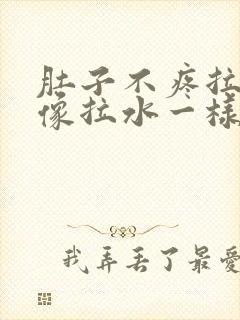 肚子不疼拉
像拉水一樣
我弄丟了最愛